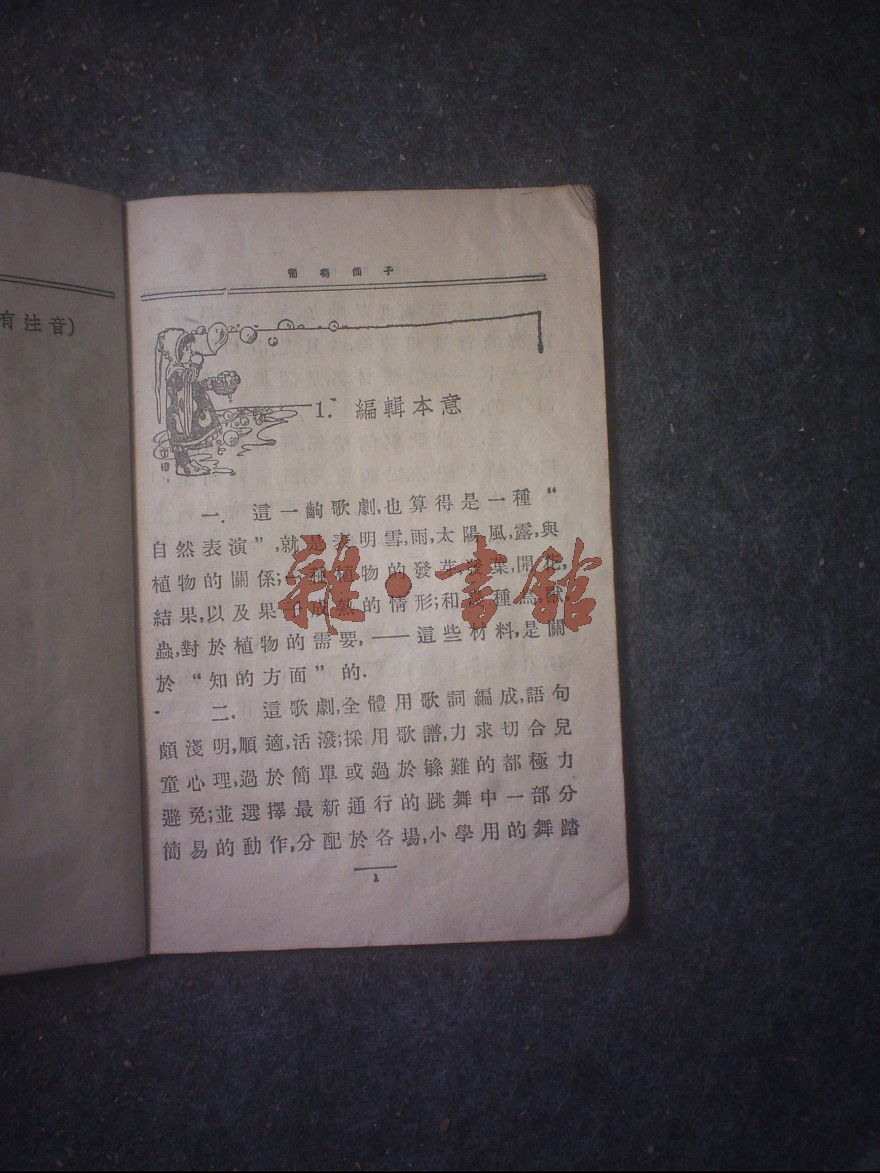 有注音)
葡萄仙子
1. 編輯本意
一. 這一齣歌劇,也算得是一種“
自然表演”,就是表明雪,雨,太陽風,露,與
植物的關係;一種植物的發芽發葉,開花,
結果,以及果子成熟的情形;和
蟲,對於植物的需要,——這些材料,是關
於“知的方面”的.
二. 這歌劇,全體用歌詞編成,語句
頗淺明,順適,活潑;採用歌譜,力求切合兒
童心理,過於簡單或過於緐難的都極力
避免;並選擇最新通行的跳舞中一部分
簡易的動作,分配於各場,小學用的舞踏
1
雜·書館